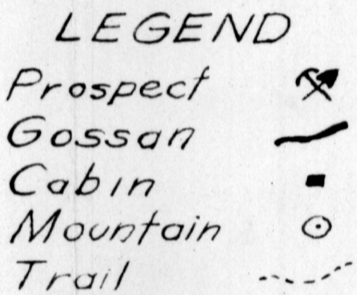 LEGEND
Prospect
Gossan
Cabin
Mountain
Trail